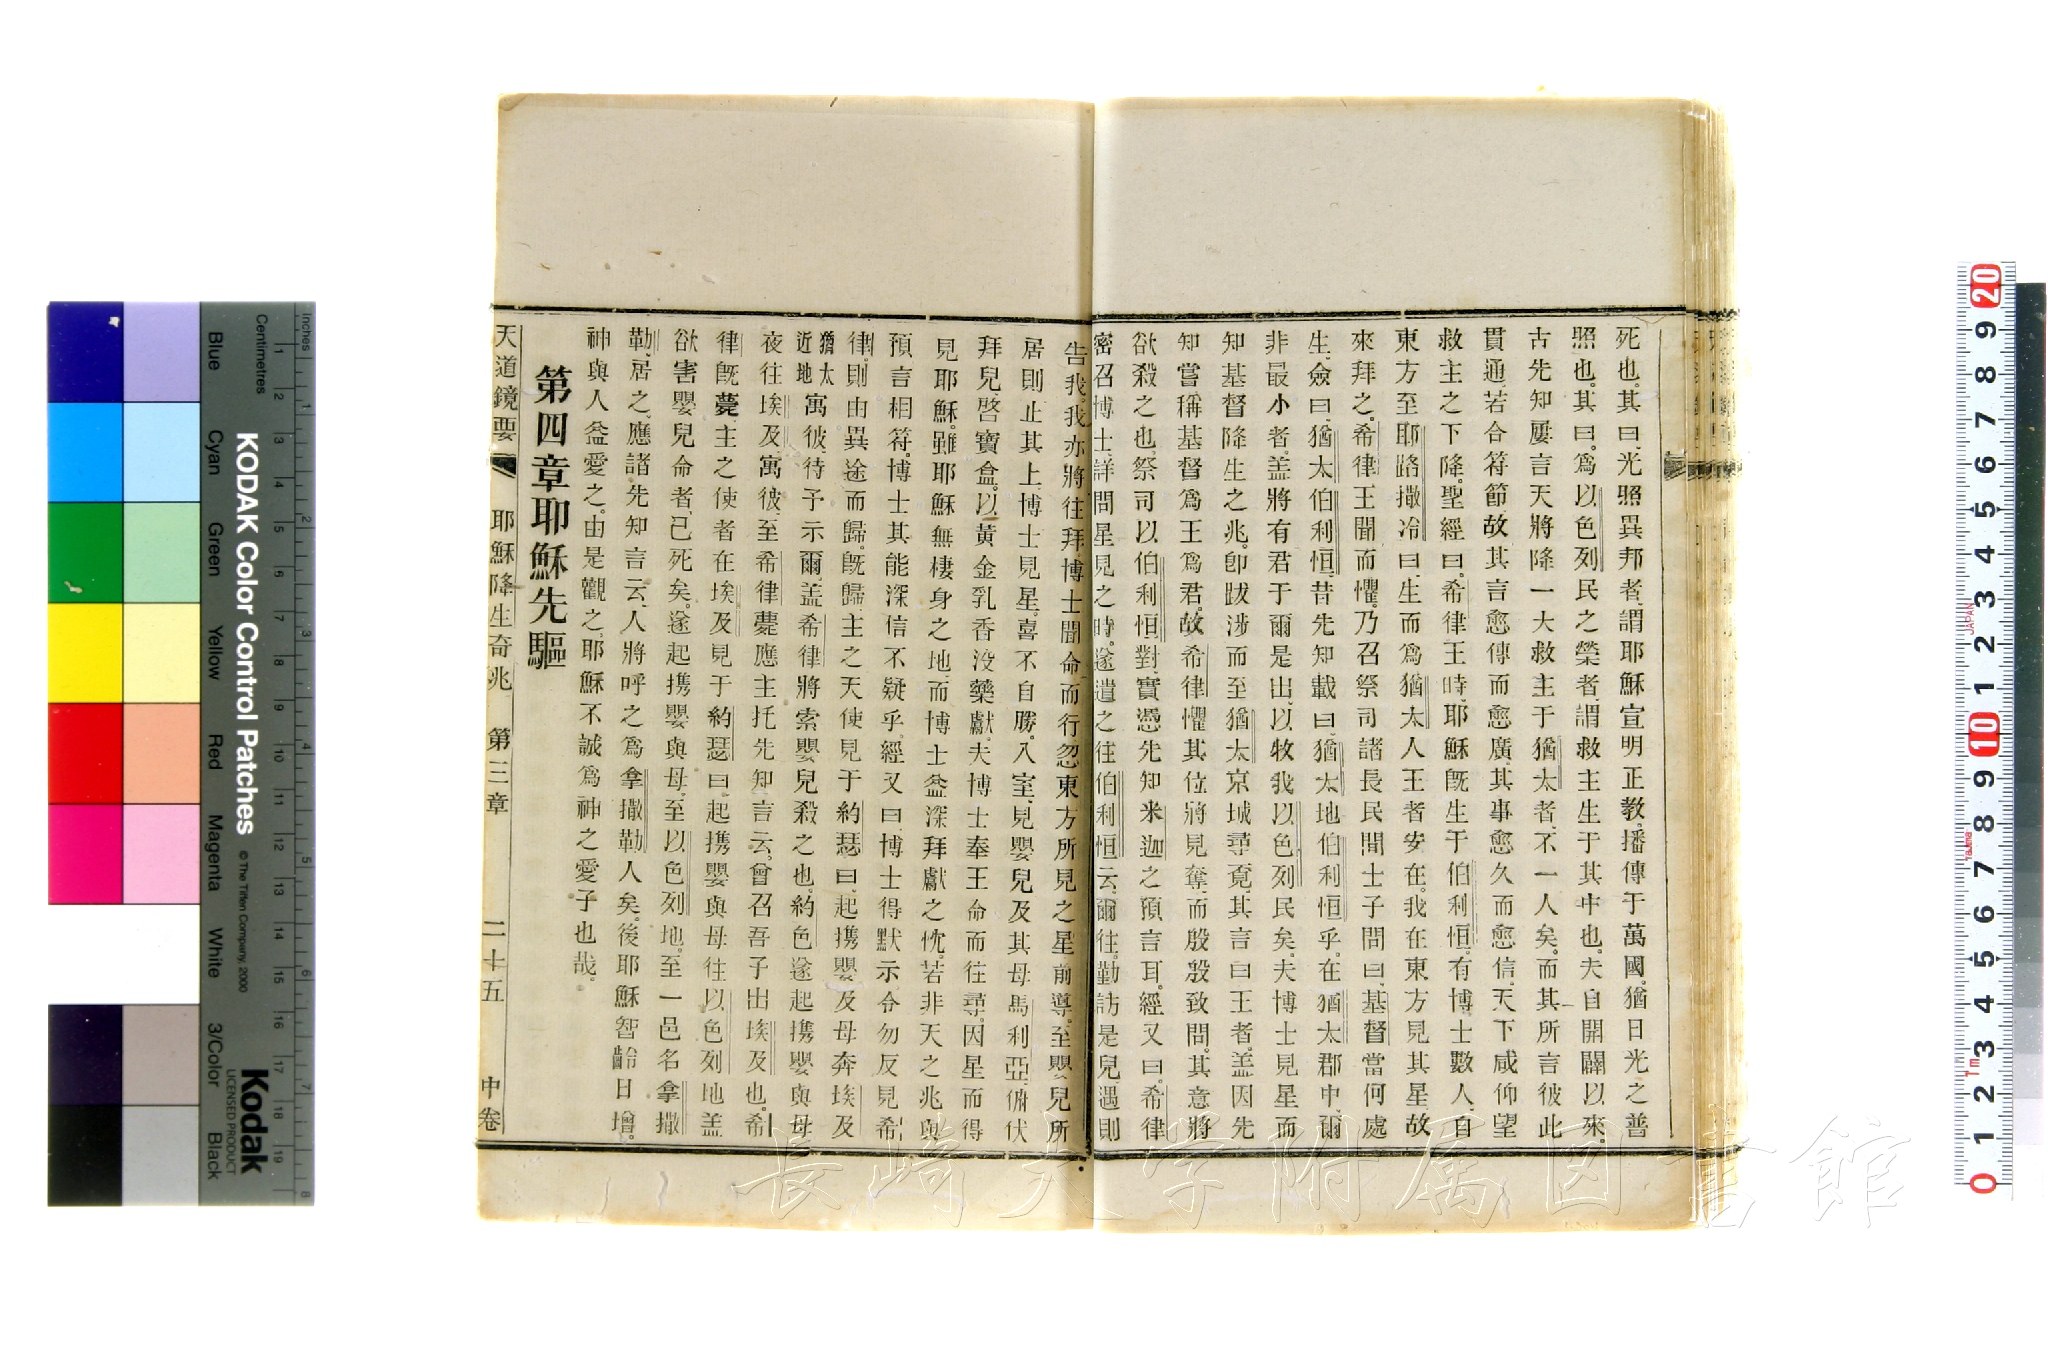 死也。其曰、光照異邦者、謂耶穌宣明正教、播傳于萬國、猶日光之普
照也。其曰、爲以色列民之榮者、謂救主生于其中也。夫自開闢以來。
古先知屢言天將降一大救主于猶太者、不一人矣。而其所言彼此
貫通、若合符節、故其言愈傳而愈廣、其事愈久而愈信、天下咸仰望
救主之下降。聖經曰、希律王時、耶穌旣生于伯利恒、有博士數人、自
東方至耶路撒冷曰、生而爲猶太人王者安在、我在東方見其星、故
來拜之、希律王聞而懼、乃召祭司諸長民間士子問曰、基督當何處
生、僉曰、猶太伯利恒、昔先知載曰、猶太地伯利恒乎、在猶太郡中、爾
非最小者、蓋將有君于爾是出、以牧我以色列民矣。夫博士見星而
知基督降生之兆、卽跋涉而至猶太京城尋覓、其言曰王者、蓋因先
知嘗稱基督爲王爲君、故希律懼其位將見奪、而殷殷致問、其意將
欲殺之也、祭司以伯利恒對、實憑先知米迦之預言耳。經又曰、希律
密召博士、詳問星見之時、遂遣之往伯利恒云、爾往勤訪是兒、遇則
告我、我亦將往拜、博士聞命而行、忽東方所見之星前導、至嬰兒所
居則止其上、博士見星、喜不自勝、入室、見嬰兒及其母馬利亞、俯伏
拜兒、啓寶盒、以黃金乳香沒藥獻。夫博士奉王命而往尋、因星而得
見耶穌、雖耶穌無棲身之地、而博士益深拜獻之忱、若非天之兆與
預言相符、博士其能深信不疑乎、經又曰、博士得默示、令勿反見希
律、則由異途而歸、旣歸、主之天使見于約瑟曰、起携嬰及母奔埃及
猶太近地寓彼、待予示爾、蓋希律將索嬰兒殺之也、約色遂起携嬰與母
夜往埃及、寓彼至希律薨、應主托先知言云、曾召吾子出埃及也。希
律旣薨、主之使者在埃及見于約瑟曰、起携嬰與母往以色列地、蓋
欲害嬰兒命者、已死矣。遂起携嬰與母、至以色列地。至一邑名拿撒
勒、居之、應諸先知言云、人將呼之爲拿撒勒人矣。後耶穌智齡日增。
神與人益愛之。由是觀之、耶穌不誠爲神之愛子也哉。
第四章耶穌先驅
天道鏡要 耶穌降生奇兆 第三章 二十五 中卷
長崎大学附属図書館
KODAK Color Control Patches
© The Tiffen Company, 2000
Kodak
LICENSED PRODUCT
Inches
Centimetres
Blue Cyan Green Yellow Red Magenta White 3/Color Black
JAPAN